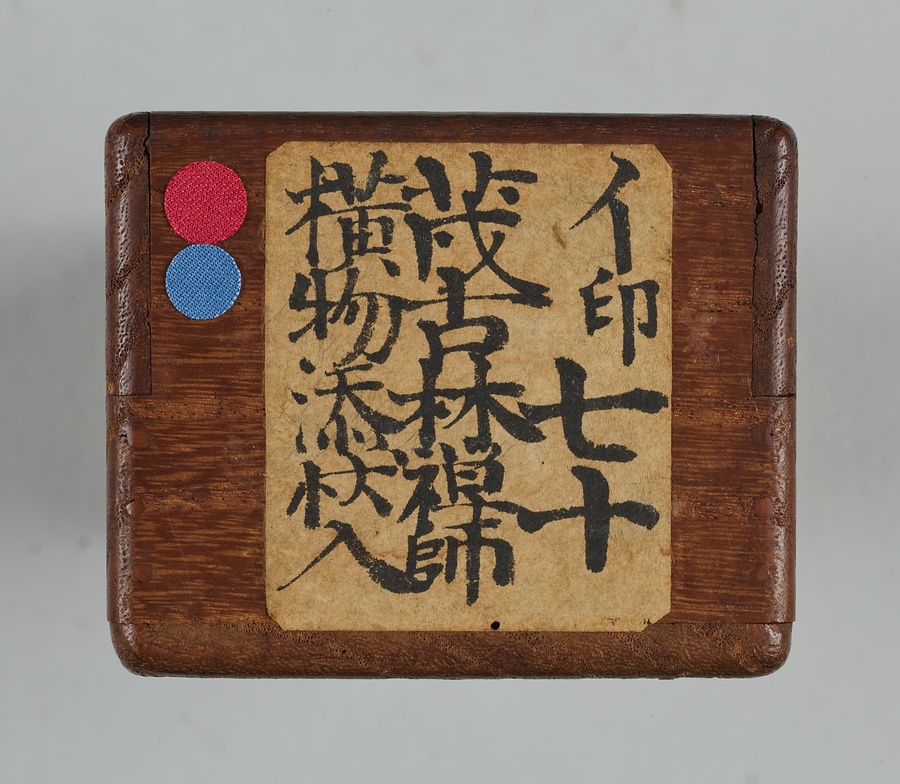 イ印七十
茂古林禅師
横物添状入